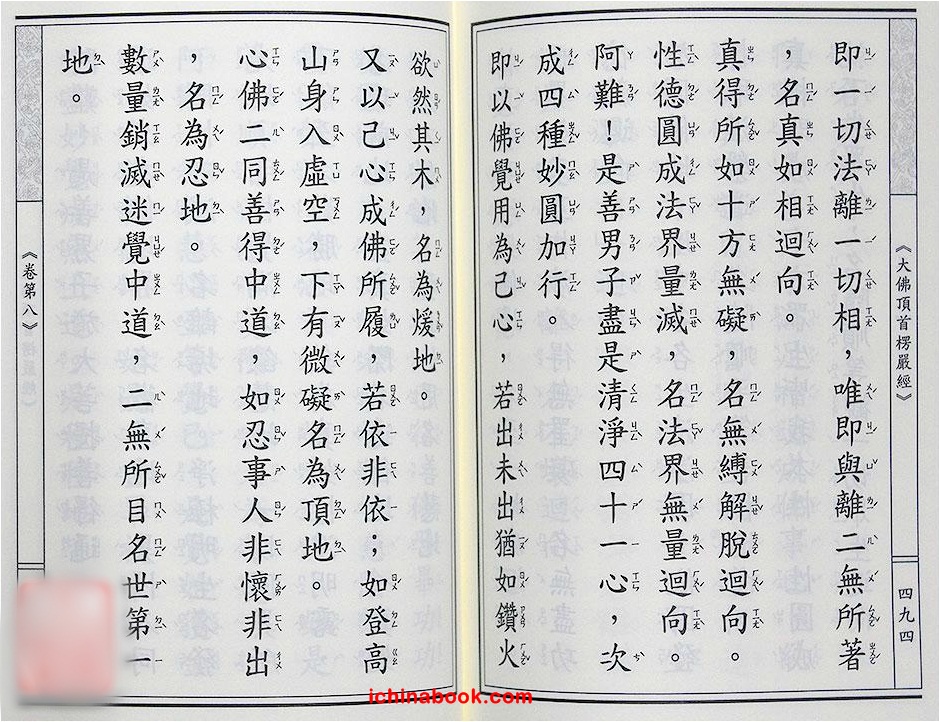 《大佛頂首楞嚴經》
四九四
即一切法離一切相，唯即與離二無所著
，名真如相迴向。
真得所如十方無礙，名無縛解脫迴向。
性德圓成法界量滅，名法界無量迴向。
阿難！是善男子盡是清淨四十一心，次
成四種妙圓加行
即以佛覺用為己心，若出未出猶如鑽火
欲然其木名為煖地。
又以己心成佛所履，若依非依；如登高
山身入虛空，下有微礙名為頂地。
心佛二同善得中道，如忍事人非懷非出
，名為忍地。
數量銷滅迷覺中道，二無所目名世第一
地。
《卷第八》
ichinabook.com